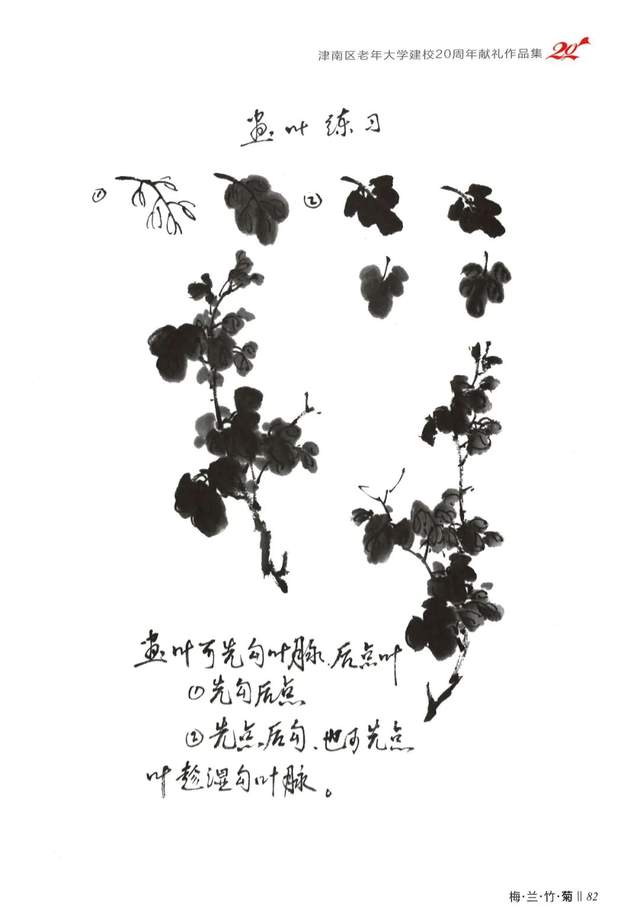 津南区老年大学建校20周年献礼作品集 20
画叶练习
① ②
画叶可先勾叶脉.后点叶
①先勾后点
②先点后勾、也可先点
叶趁湿勾叶脉。
梅·兰·竹·菊 || 82